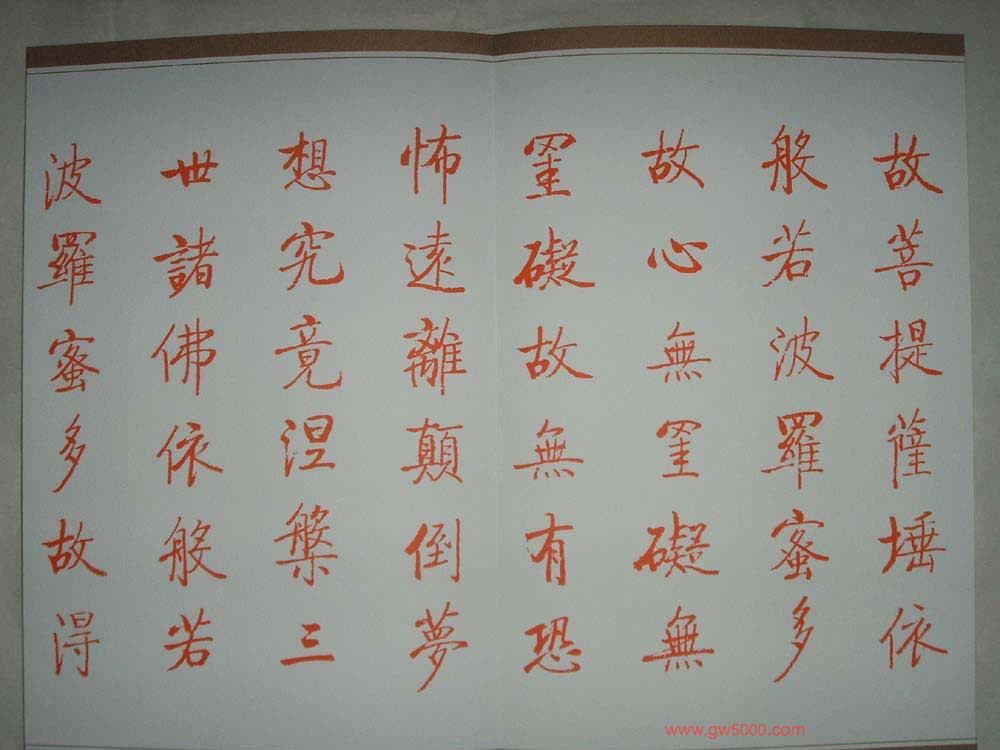 故菩提薩埵依
般若波羅蜜多
故心無罣礙無
罣礙故無有恐
怖遠離顛倒夢
想究竟涅槃三
世諸佛依般若
波羅蜜多故得
www.gw5000.com